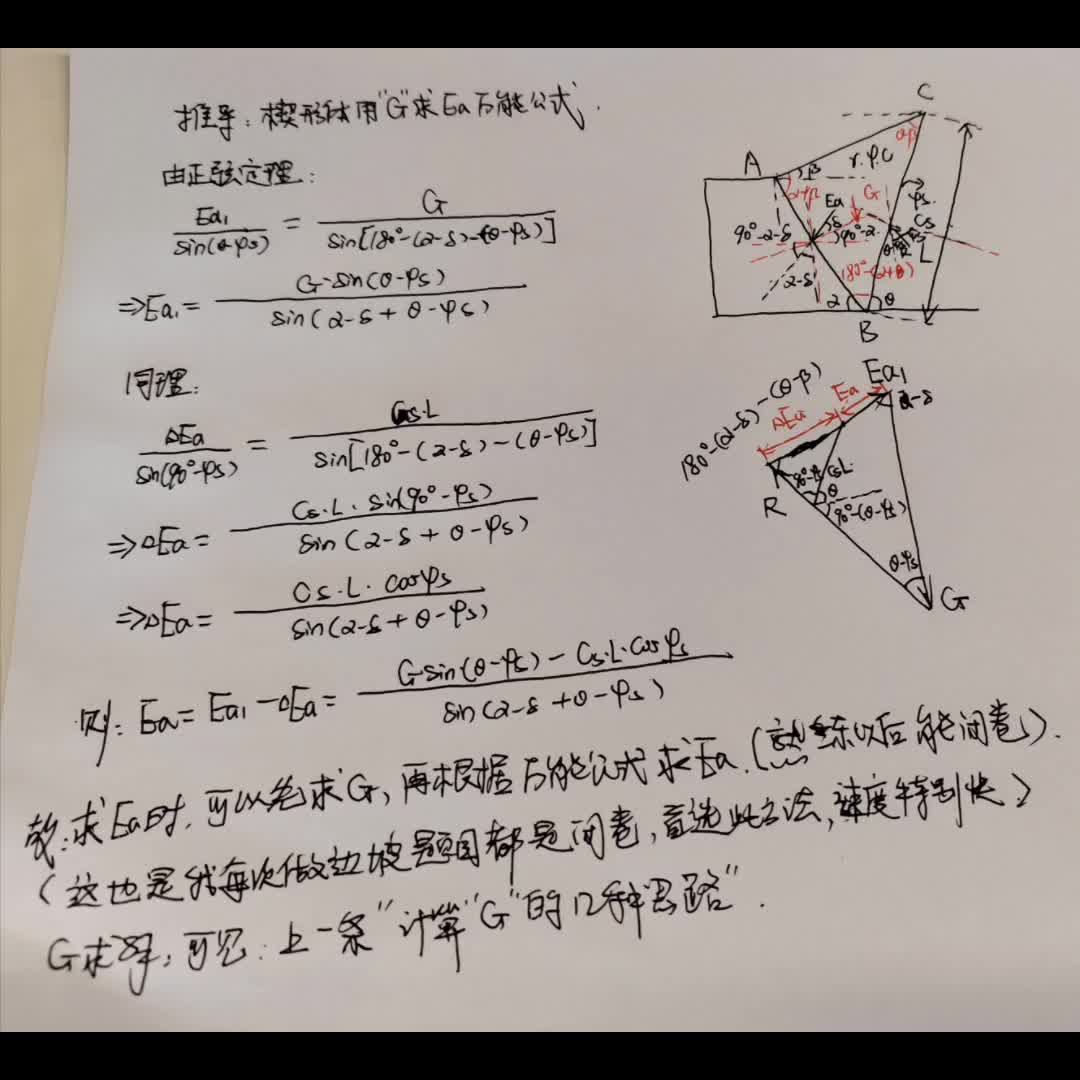 推导：楔形体用"G"求Ea万能公式.
由正弦定理：
Ea₁/sin(θ-φs) = G/sin[180°-(2-δ)-(θ-φs)]
⇒Ea₁= G·sin(θ-φs)/sin(2-δ+θ-φs)
同理:
ΔEa/sin(90°-φs) = Cs·L/sin[180°-(2-δ)-(θ-φs)]
⇒ΔEa= Cs·L·sin(90°-φs)/sin(2-δ+θ-φs)
⇒ΔEa= Cs·L·cosφs/sin(2-δ+θ-φs)
则：Ea=Ea₁-ΔEa= Gsin(θ-φs)-Cs·L·cosφs/sin(2-δ+θ-φs)
故:求Ea时,可以先求G,再根据万能公式求Ea.(熟练以后能闭卷).
(这也是我每次做边坡题目都是闭卷,首选此方法,速度特别快)
G求解,可见:上一条"计算"G"的几种思路".
C
A
β
r.φ.C
Ea
G
δ
φs
Cs
90°-2-δ
90°-2
L
2-δ
180°-(2+θ)
2
θ
B
180°-(2-δ)-(θ-β)
ΔEa
Ea
Ea₁
2-δ
90°-φs
Cs·L
θ
R
90°-(θ-φs)
θ-φs
G